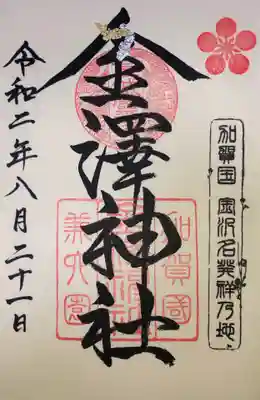 加賀国 金沢名発祥乃地
金澤神社
加賀國
兼六園
令和二年八月二十一日